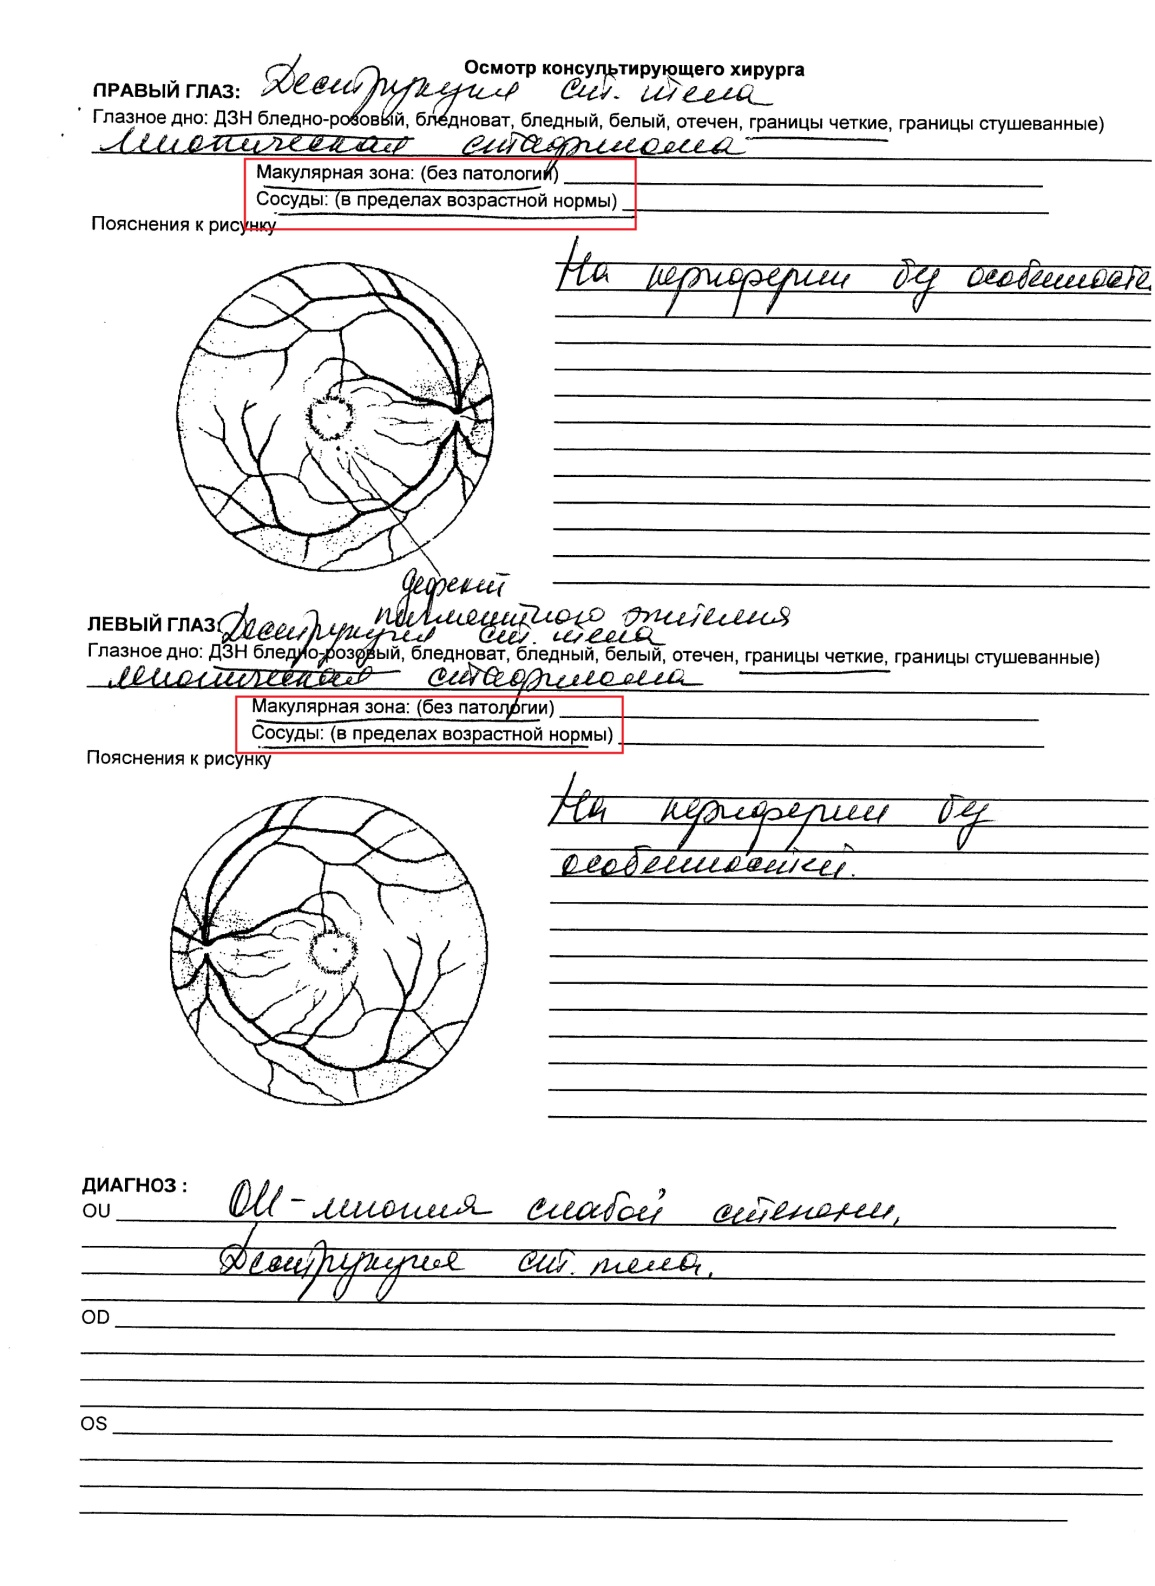 Осмотр консультирующего хирурга
ПРАВЫЙ ГЛАЗ: Деструкция ст. тела
Глазное дно: ДЗН бледно-розовый, бледноват, бледный, белый, отечен, границы четкие, границы стушеванные)
миопическая стафилома
Макулярная зона: (без патологии)
Сосуды: (в пределах возрастной нормы)
Пояснения к рисунку
На периферии б/у особенносте
дефект
пигментного эпителия
ЛЕВЫЙ ГЛАЗ: Деструкция ст. тела
Глазное дно: ДЗН бледно-розовый, бледноват, бледный, белый, отечен, границы четкие, границы стушеванные)
миопическая стафилома
Макулярная зона: (без патологии)
Сосуды: (в пределах возрастной нормы)
Пояснения к рисунку
На периферии без
особенностей.
ДИАГНОЗ :
OU OU - миопия слабой степени,
Деструкция ст. тела.
OD
OS